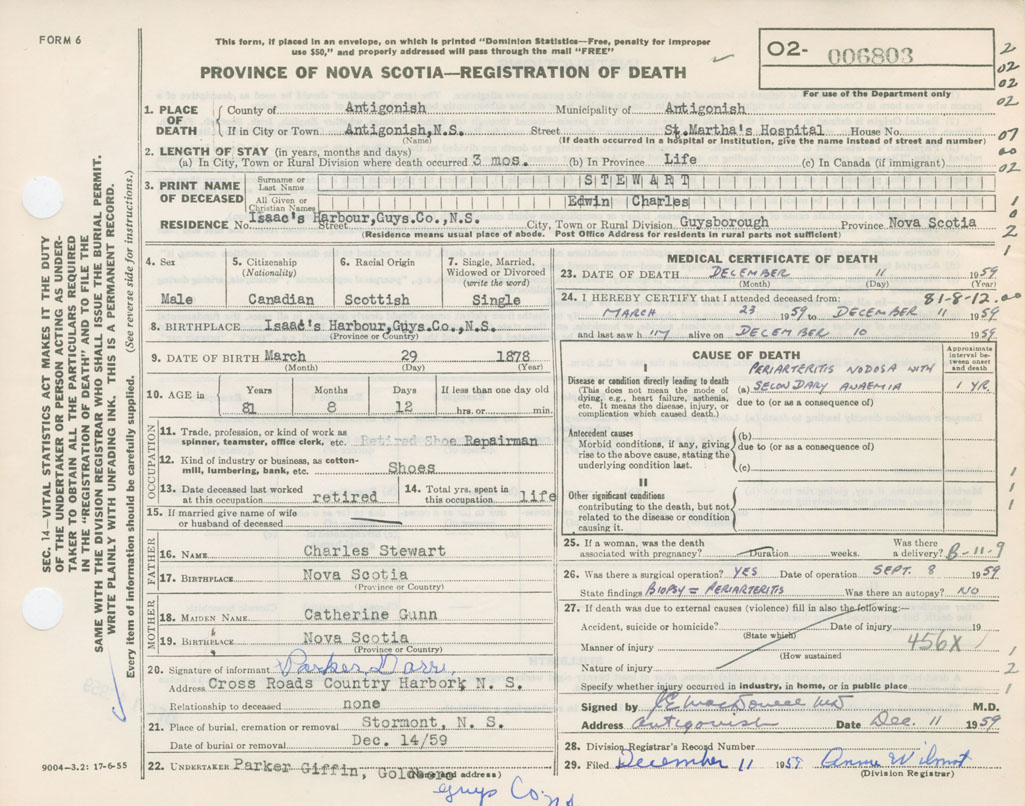 FORM 6
This form, if placed in an envelope, on which is printed "Dominion Statistics—Free, penalty for improper
use $50," and properly addressed will pass through the mail "FREE"
PROVINCE OF NOVA SCOTIA—REGISTRATION OF DEATH
02- 006803
For use of the Department only
2
02
02
02
07
00
02
1
0
2
1
1. PLACE OF DEATH
County of Antigonish Municipality of Antigonish
If in City or Town Antigonish,N.S. Street St.Martha's Hospital House No.
(Name) (If death occurred in a hospital or institution, give the name instead of street and number)
2. LENGTH OF STAY (in years, months and days)
(a) In City, Town or Rural Division where death occurred 3 mos. (b) In Province Life (c) In Canada (if immigrant)
3. PRINT NAME OF DECEASED
Surname or Last Name STEWART
All Given or Christian Names Edwin Charles
RESIDENCE No. Isaac's Harbour,Guys.Co.,N.S. Street City, Town or Rural Division Guysborough Province Nova Scotia
(Residence means usual place of abode. Post Office Address for residents in rural parts not sufficient)
4. Sex
Male
5. Citizenship
(Nationality)
Canadian
6. Racial Origin
Scottish
7. Single, Married,
Widowed or Divorced
(write the word)
Single
8. BIRTHPLACE Isaac's Harbour,Guys.Co.,N.S.
(Province or Country)
9. DATE OF BIRTH March 29 1878
(Month) (Day) (Year)
10. AGE in
Years Months Days If less than one day old
81 8 12 hrs. or min.
OCCUPATION
11. Trade, profession, or kind of work as
spinner, teamster, office clerk, etc. Retired Shoe Repairman
12. Kind of industry or business, as cotton-
mill, lumbering, bank, etc. Shoes
13. Date deceased last worked
at this occupation retired
14. Total yrs. spent in
this occupation life
15. If married give name of wife
or husband of deceased
FATHER
16. NAME Charles Stewart
17. BIRTHPLACE Nova Scotia
(Province or Country)
MOTHER
18. MAIDEN NAME Catherine Gunn
19. BIRTHPLACE Nova Scotia
(Province or Country)
20. Signature of informant Parker
Address Cross Roads Country Harbork N. S.
Relationship to deceased none
21. Place of burial, cremation or removal Stormont, N. S.
Date of burial or removal Dec. 14/59
22. UNDERTAKER Parker Giffin, Goldboro
(Name and address)
Guys Co. N.S.
MEDICAL CERTIFICATE OF DEATH
23. DATE OF DEATH DECEMBER 11 1959
(Month) (Day) (Year)
24. I HEREBY CERTIFY that I attended deceased from: 81-8-12.00
MARCH 23 1959 to DECEMBER 11 1959
and last saw h IM alive on DECEMBER 10 1959
CAUSE OF DEATH
Approximate interval between onset and death
I
Disease or condition directly leading to death
(This does not mean the mode of
dying, e.g., heart failure, asthenia,
etc. It means the disease, injury, or
complication which caused death.)
PERIARTERITIS NODOSA WITH
(a) SECONDARY ANAEMIA 1 YR.
due to (or as a consequence of)
Antecedent causes
Morbid conditions, if any, giving
rise to the above cause, stating the
underlying condition last.
(b)
due to (or as a consequence of)
(c)
II
Other significant conditions
contributing to the death, but not
related to the disease or condition
causing it.
1
1
1
25. If a woman, was the death
associated with pregnancy? Duration weeks. Was there
a delivery? B-11-9
26. Was there a surgical operation? YES Date of operation SEPT. 8 1959
State findings BIOPSY = PERIARTERITIS Was there an autopsy? NO
27. If death was due to external causes (violence) fill in also the following:—
Accident, suicide or homicide? Date of injury 19
(State which)
Manner of injury 456X
(How sustained
Nature of injury
1
2
Specify whether injury occurred in industry, in home, or in public place
1
Signed by M.D.
Address Antigonish Date Dec. 11 1959
28. Division Registrar's Record Number
29. Filed December 11 1959 Annie Wilmot
(Division Registrar)
SEC. 14—VITAL STATISTICS ACT MAKES IT THE DUTY
OF THE UNDERTAKER OR PERSON ACTING AS UNDER-
TAKER TO OBTAIN ALL THE PARTICULARS REQUIRED
IN THE "REGISTRATION OF DEATH" AND TO FILE THE
SAME WITH THE DIVISION REGISTRAR WHO SHALL ISSUE THE BURIAL PERMIT.
WRITE PLAINLY WITH UNFADING INK. THIS IS A PERMANENT RECORD.
Every item of information should be carefully supplied. (See reverse side for instructions.)
9004—3.2: 17-6-55